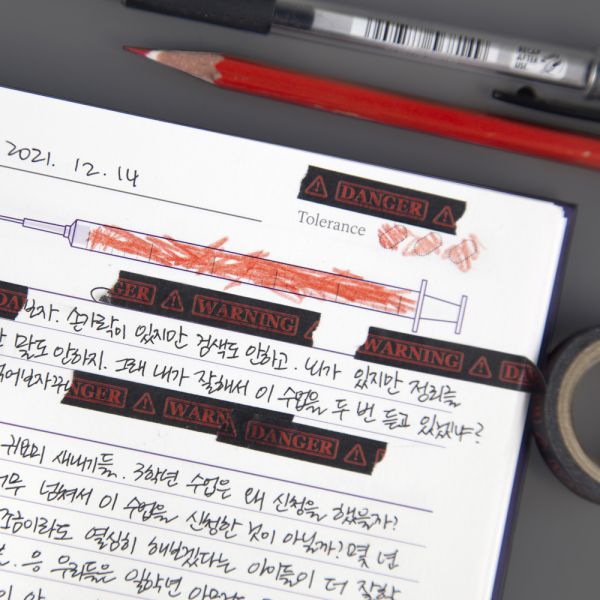 RECAP
AFTER
USE
2021. 12. 14
DANGER
Tolerance
GER WARNING
WARNING DA
보자. 손가락이 있지만 검색도 안하고. 뇌가 있지만 정리를
말도 안하지. 그래 내가 잘해서 이 수업을 두 번 듣고 있겠냐?
NGER WARN DANGER
귀요미 새내기들. 3학년 수업은 왜 신청을 했을까?
넘쳐서 이 수업을 신청한 것이 아닐까? 몇 년
조금이라도 열심히 해보겠다는 아이들이 더 잘함
응 우리들은 일학년